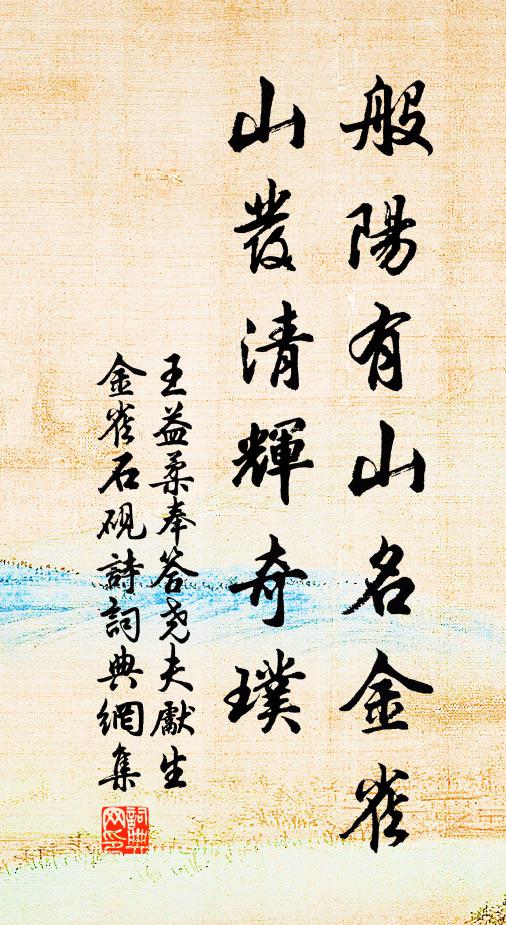 般陽有山名金雀
山發清輝奇璞
王益柔奉答尧夫獻生
金雀石硯詩詞典網集
詞典网印